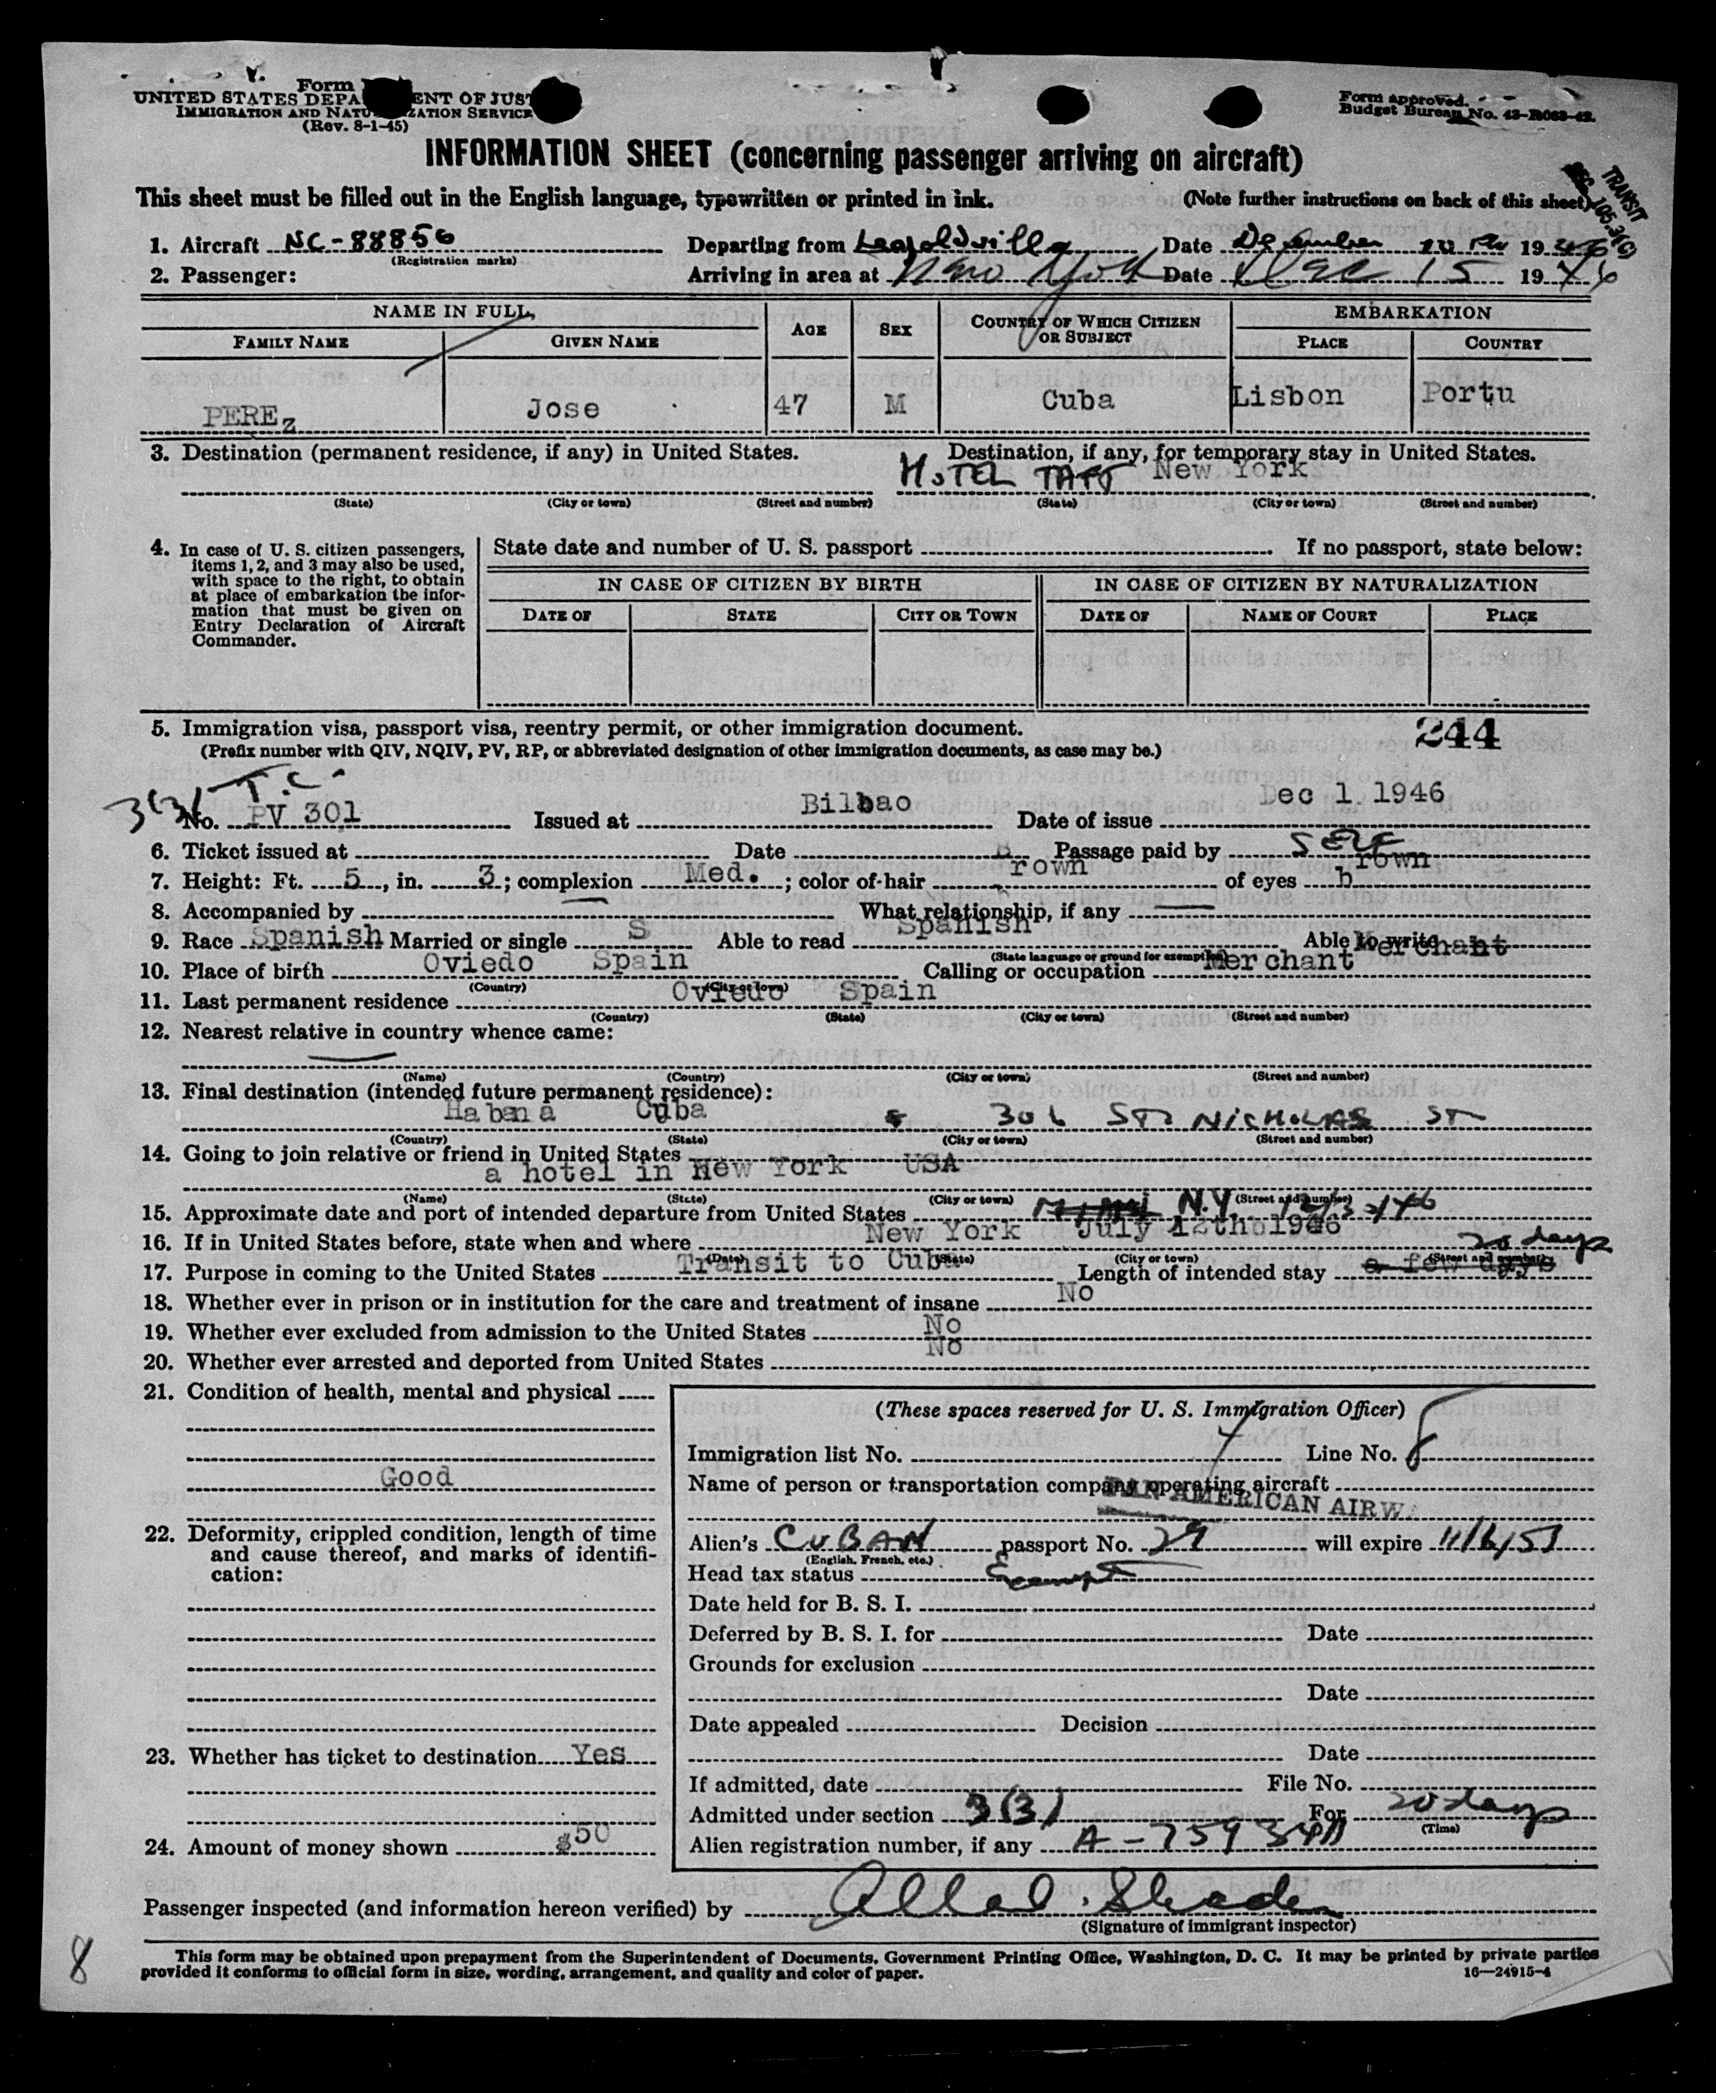 Form
UNITED STATES DEPA ENT OF JUST
IMMIGRATION AND NATU ZATION SERVICE
(Rev. 8-1-45)
Form approved.
Budget Bureau No. 43-R063-42.
INFORMATION SHEET (concerning passenger arriving on aircraft)
This sheet must be filled out in the English language, typewritten or printed in ink. (Note further instructions on back of this sheet)
TRANSIT
SEC 105.3(C)
1. Aircraft NC-88856 Departing from Leopoldville Date December 1946
(Registration marks)
2. Passenger: Arriving in area at New York Date Dec 15 1946
NAME IN FULL AGE SEX COUNTRY OF WHICH CITIZEN OR SUBJECT EMBARKATION
FAMILY NAME GIVEN NAME PLACE COUNTRY
PEREz Jose 47 M Cuba Lisbon Portu
3. Destination (permanent residence, if any) in United States. Destination, if any, for temporary stay in United States.
HOTEL TAFT New York
(State) (City or town) (Street and number) (State) (City or town) (Street and number)
4. In case of U. S. citizen passengers, items 1, 2, and 3 may also be used, with space to the right, to obtain at place of embarkation the information that must be given on Entry Declaration of Aircraft Commander.
State date and number of U. S. passport If no passport, state below:
IN CASE OF CITIZEN BY BIRTH IN CASE OF CITIZEN BY NATURALIZATION
DATE OF STATE CITY OR TOWN DATE OF NAME OF COURT PLACE
5. Immigration visa, passport visa, reentry permit, or other immigration document. 244
(Prefix number with QIV, NQIV, PV, RP, or abbreviated designation of other immigration documents, as case may be.)
3(3) T.C.
No. PV 301 Issued at Bilbao Date of issue Dec 1 1946
6. Ticket issued at Date Passage paid by SELF
7. Height: Ft. 5, in. 3; complexion Med.; color of hair Brown of eyes brown
8. Accompanied by What relationship, if any
9. Race Spanish Married or single S Able to read Spanish Able to write Merchant
(State language or ground for exemption)
10. Place of birth Oviedo Spain Calling or occupation Merchant
(Country) (City or town)
11. Last permanent residence Oviedo Spain
(Country) (State) (City or town) (Street and number)
12. Nearest relative in country whence came:
(Name) (Country) (City or town) (Street and number)
13. Final destination (intended future permanent residence):
Habana Cuba 301 ST NICHOLAS ST
(Country) (State) (City or town) (Street and number)
14. Going to join relative or friend in United States
a hotel in New York USA
(Name) (State) (City or town) (Street and number)
15. Approximate date and port of intended departure from United States Miami N.Y
16. If in United States before, state when and where New York July 12th 1946
(Date) (State) (City or town) (Street and number)
17. Purpose in coming to the United States Transit to Cuba Length of intended stay a few days 20 days
18. Whether ever in prison or in institution for the care and treatment of insane No
19. Whether ever excluded from admission to the United States No
20. Whether ever arrested and deported from United States No
21. Condition of health, mental and physical
Good
22. Deformity, crippled condition, length of time and cause thereof, and marks of identification:
23. Whether has ticket to destination Yes
24. Amount of money shown $50
(These spaces reserved for U. S. Immigration Officer)
Immigration list No. 4 Line No. 8
Name of person or transportation company operating aircraft
PAN AMERICAN AIRWA
Alien's CUBAN passport No. 29 will expire 11/6/51
(English, French, etc.)
Head tax status Exempt
Date held for B. S. I.
Deferred by B. S. I. for Date
Grounds for exclusion
Date
Date appealed Decision
Date
If admitted, date File No.
Admitted under section 3(3) For 20 days
(Time)
Alien registration number, if any
Passenger inspected (and information hereon verified) by
(Signature of immigrant inspector)
8
This form may be obtained upon prepayment from the Superintendent of Documents, Government Printing Office, Washington, D. C. It may be printed by private parties
provided it conforms to official form in size, wording, arrangement, and quality and color of paper. 16—24915-4